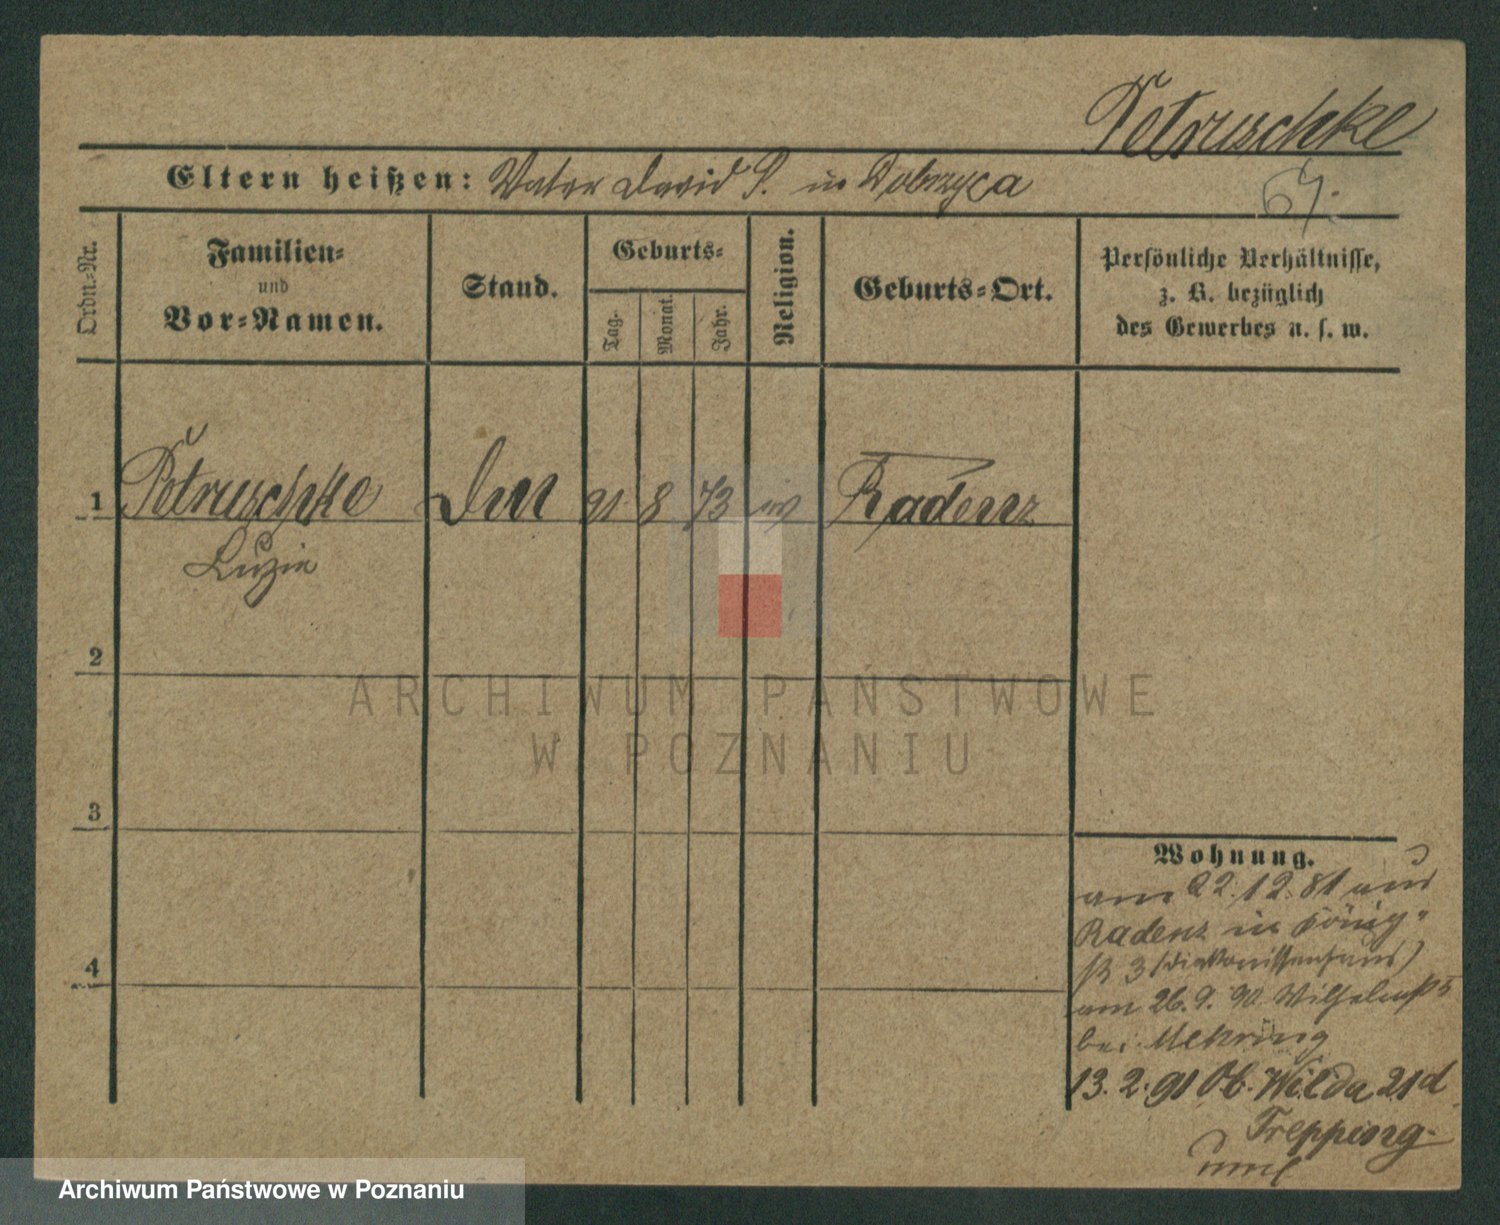 Petruschke
Eltern heißen: Vater David P. in Dobrzyca
67.
Ordn.-Nr.
Familien-
und
Vor-Namen.
Stand.
Geburts-
Tag.
Monat.
Jahr.
Religion.
Geburts-Ort.
Persönliche Verhältnisse,
z. B. bezüglich
des Gewerbes u. s. w.
1 Petruschke 8 73 Radenz
Luzie
2
3
4
ARCHIWUM PAŃSTWOWE
W POZNANIU
Wohnung.
am 22.12.81 aus
Radenz in König-
str 3 (Diakonissenhaus)
am 26.9.90. Wilhelmstr 5
bei Mehring
13.2.91 Ob. Wilda 21d
Trepping
Archiwum Państwowe w Poznaniu